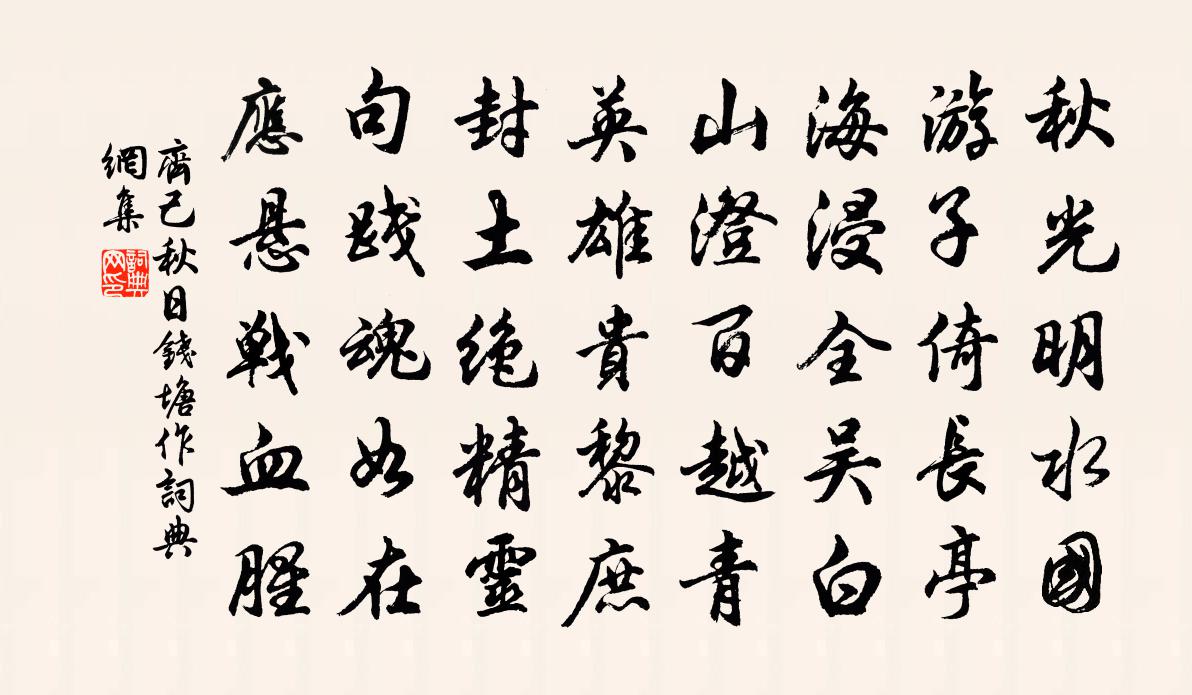 秋光明水國
游子倚長亭
海浸全吴白
山澄百越青
英雄貴黎庶
封土绝精靈
句踐魂如在
應悬戦血腥
齊己秋日錢塘作詞典
網集
詞典网印